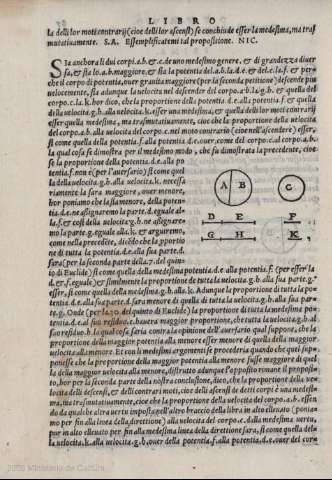 LIBRO
la delli lor moti contrarij (cioe delli lor ascensi) se conchiude esser la medesima, ma tras
mutatiuamente. S.A. Essemplificatemi tal propositione. NIC.
Sia anchora li dui corpi .a.b. & .c. de uno medesimo genere, & di grandezza diuer
sa, & sia lo .a.b. maggiore, & sia la potentia del .a.b. la .d.e. & del .c. la .f. & per
che il corpo di potentia, ouer grauita maggiore (per la seconda petitione) descende piu
velocemente, sia adunque la velocita nel descender del corpo .a.b. la .g.h. & quella del
corpo .c. la .k. hor dico, che la proportione della potentia .d.e. alla potentia .f. & quella
della velocita .g.h. alla velocita .k. esser una medesima, & quella delli lor moti contrarij
esser quella medesima, ma trasmutatiuamente, cioe che la proportione della velocita
del corpo .a.b. alla velocita del corpo .c. nel moto contrario (cioe nell'ascendere) esser,
si come quella della potentia .f. alla potentia .d.e. ouer, come del corpo .c. al corpo .a.b.
la qual cosa se dimostra per il medesimo modo, che fu dimostrata la precedente, cioe
se la proportione della potentia .d.e. alla po
tentia .f. non è (per l'auersario) si come quel
la della velocita .g.h. alla velocita .k. necessa
riamente la sara maggiore, ouer menore,
hor poniamo che la sia menore, della poten
tia .d.e. ne assignaremo la parte .d. eguale al
la .f. & cosi della velocita .g.h. ne assignare-
mo la parte .g. eguale alla .k. & arguiremo,
come nella precedente, dicẽdo che la ꝓportio
ne di tutta la potentia .d.e. alla sua parte .d.
sara (per la seconda parte della .7. del quin
to di Euclide) si come quella della medesima potentia .d.e. alla potentia .f. (per esser la
.d. & .f. eguale) & similmente la proportione de tutta la velocita .g.h. alla sua parte .g.
esser, si come quella della medesima .g.h. alla .k. Adunque la proportione di tutta la po
tentia .d.e. alla sua parte .d. sara menore di quella di tutta la velocita .g.h. alla sua par
te .g. Onde (per la .30. del quinto di Euclide) la proportione di tutta la medesima po
tentia .d.e. al suo residuo .e. hauera maggior proportione, che tutta la velocita .g.h. al
suo residuo .h. la qual cosa, saria contra la opinione dell'auersario qual suppone, che la
proportione della maggior potentia alla menore esser menore di quella della maggior
velocita alla menore. Et con li medesimi argomenti se procederia quando che quel sup-
ponesse che la proportione della maggior potentia alla menore fusse maggiore di quel
la della maggior velocita alla menore, distrutto adunque l'opposito romane il proposi-
to, hor per la seconda parte della nostra conclusione, dico, che la proportione della velo
cita delli descensi, & delli contrarij moti, cioe delli ascensi de detti corpi è una medesi-
ma, ma trasmutatiuamente, cioe che la proportione della velocita del corpo .a.b. essen
do da qualche altra uertu imposta nell'altro braccio della libra in alto elleuato (ponia-
mo per fin alla linea della direttione) alla velocita del corpo .c. dalla medesima uertu,
pur in alto elleuato per fin alla medesima linea della direttione sara, si come quella del-
la velocita .k. alla velocita .g.h. ouer della potentia .f. alla potentia .d.e. ouer del cor-
A B C
D E F
G H K
2009 Ministerio de Cultura